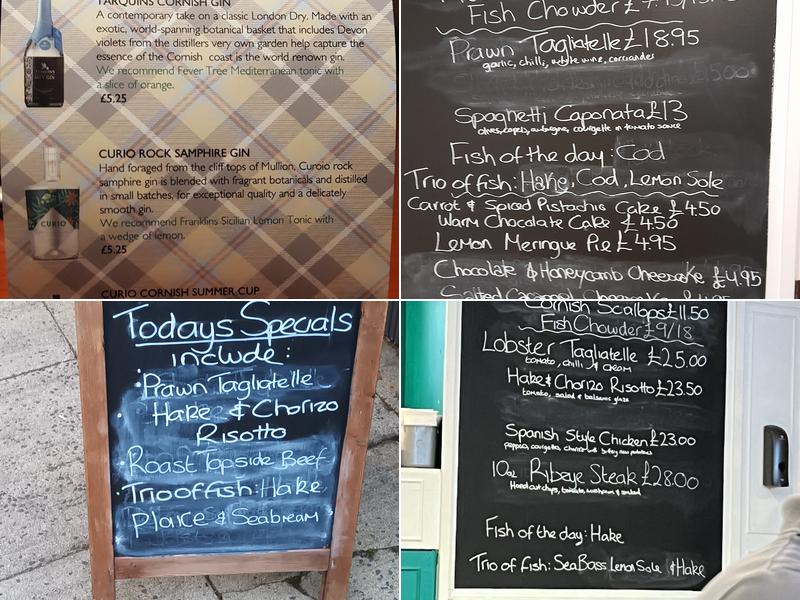 TARQUINS CORNISH GIN
A contemporary take on a classic London Dry. Made with an
exotic, world-spanning botanical basket that includes Devon
violets from the distillers very own garden help capture the
essence of the Cornish coast is the world renown gin.
We recommend Fever Tree Mediterranean tonic with
a slice of orange.
£5.25
CURIO ROCK SAMPHIRE GIN
Hand foraged from the cliff tops of Mullion, Curoio rock
samphire gin is blended with fragrant botanicals and distilled
in small batches, for exceptional quality and a delicately
smooth gin.
We recommend Franklins Sicilian Lemon Tonic with
a wedge of lemon.
£5.25
CURIO
CURIO CORNISH SUMMER CUP
Fish Chowder
Prawn Tagliatelle £18.95
garlic, chilli, white wine, corriander
Spaghetti Caponata £13
olives, capers, aubergine, courgette in tomato sauce
Fish of the day: Cod
Trio of fish: Hake, Cod, Lemon Sole
Carrot & Spiced Pistachio Cake £4.50
Warm Chocolate Cake £4.50
Lemon Meringue Pie £4.95
Chocolate & Honeycomb Cheesecake £4.95
Salted Caramel
Todays Specials
include:
Prawn Tagliatelle
Hake & Chorizo
Risotto
Roast Topside Beef
Trio of fish: Hake,
Plaice & Seabream
Cornish Scallops £11.50
Fish Chowder £9/18
Lobster Tagliatelle £25.00
tomato, chilli & cream
Hake & Chorizo Risotto £23.50
tomato, salad & balsamic glaze
Spanish Style Chicken £23.00
peppers, courgette, chorizo with new potatoes
10oz Ribeye Steak £28.00
Hand cut chips, tomato, mushroom & salad
Fish of the day: Hake
Trio of fish: Sea Bass Lemon Sole & Hake